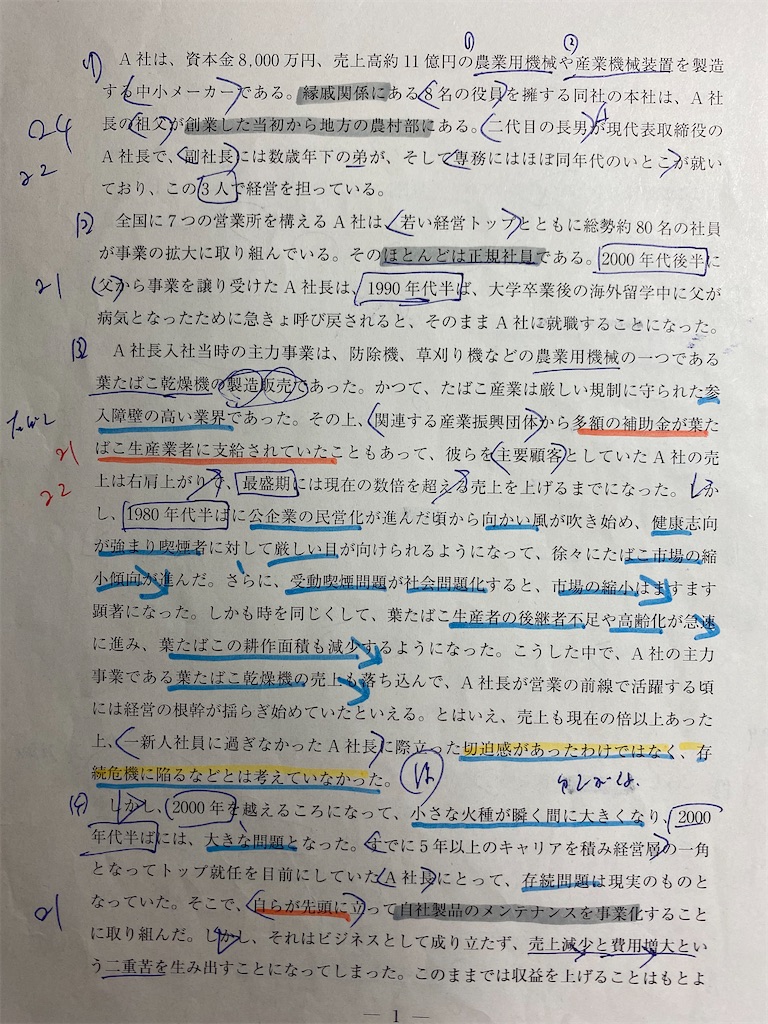 ① ②
(1) A社は、資本金8,000万円、売上高約11億円の農業用機械や産業機械装置を製造
する中小メーカーである。縁戚関係にある8名の役員を擁する同社の本社は、A社
長の祖父が創業した当初から地方の農村部にある。二代目の長男が現代表取締役の
A社長で、副社長には数歳年下の弟が、そして専務にはほぼ同年代のいとこが就い
ており、この3人で経営を担っている。
(2) 全国に7つの営業所を構えるA社は、若い経営トップとともに総勢約80名の社員
が事業の拡大に取り組んでいる。そのほとんどは正規社員である。2000年代後半に
父から事業を譲り受けたA社長は、1990年代半ば、大学卒業後の海外留学中に父が
病気となったために急きょ呼び戻されると、そのままA社に就職することになった。
(3) A社長入社当時の主力事業は、防除機、草刈り機などの農業用機械の一つである
葉たばこ乾燥機の製造販売であった。かつて、たばこ産業は厳しい規制に守られた参
入障壁の高い業界であった。その上、関連する産業振興団体から多額の補助金が葉た
ばこ生産業者に支給されていたこともあって、彼らを主要顧客としていたA社の売
上は右肩上がりで、最盛期には現在の数倍を超える売上を上げるまでになった。しか
し、1980年代半ばに公企業の民営化が進んだ頃から向かい風が吹き始め、健康志向
が強まり喫煙者に対して厳しい目が向けられるようになって、徐々にたばこ市場の縮
小傾向が進んだ。さらに、受動喫煙問題が社会問題化すると、市場の縮小はますます
顕著になった。しかも時を同じくして、葉たばこ生産者の後継者不足や高齢化が急速
に進み、葉たばこの耕作面積も減少するようになった。こうした中で、A社の主力
事業である葉たばこ乾燥機の売上も落ち込んで、A社長が営業の前線で活躍する頃
には経営の根幹が揺らぎ始めていたといえる。とはいえ、売上も現在の倍以上あった
上、一新人社員に過ぎなかったA社長に際立った切迫感があったわけではなく、存
続危機に陥るなどとは考えていなかった。
(4) しかし、2000年を越えるころになって、小さな火種が瞬く間に大きくなり、2000
年代半ばには、大きな問題となった。すでに5年以上のキャリアを積み経営層の一角
となってトップ就任を目前にしていたA社長にとって、存続問題は現実のものと
なっていた。そこで、自らが先頭に立って自社製品のメンテナンスを事業化すること
に取り組んだ。しかし、それはビジネスとして成り立たず、売上減少と費用増大とい
う二重苦を生み出すことになってしまった。このままでは収益を上げることはもとよ
— 1 —